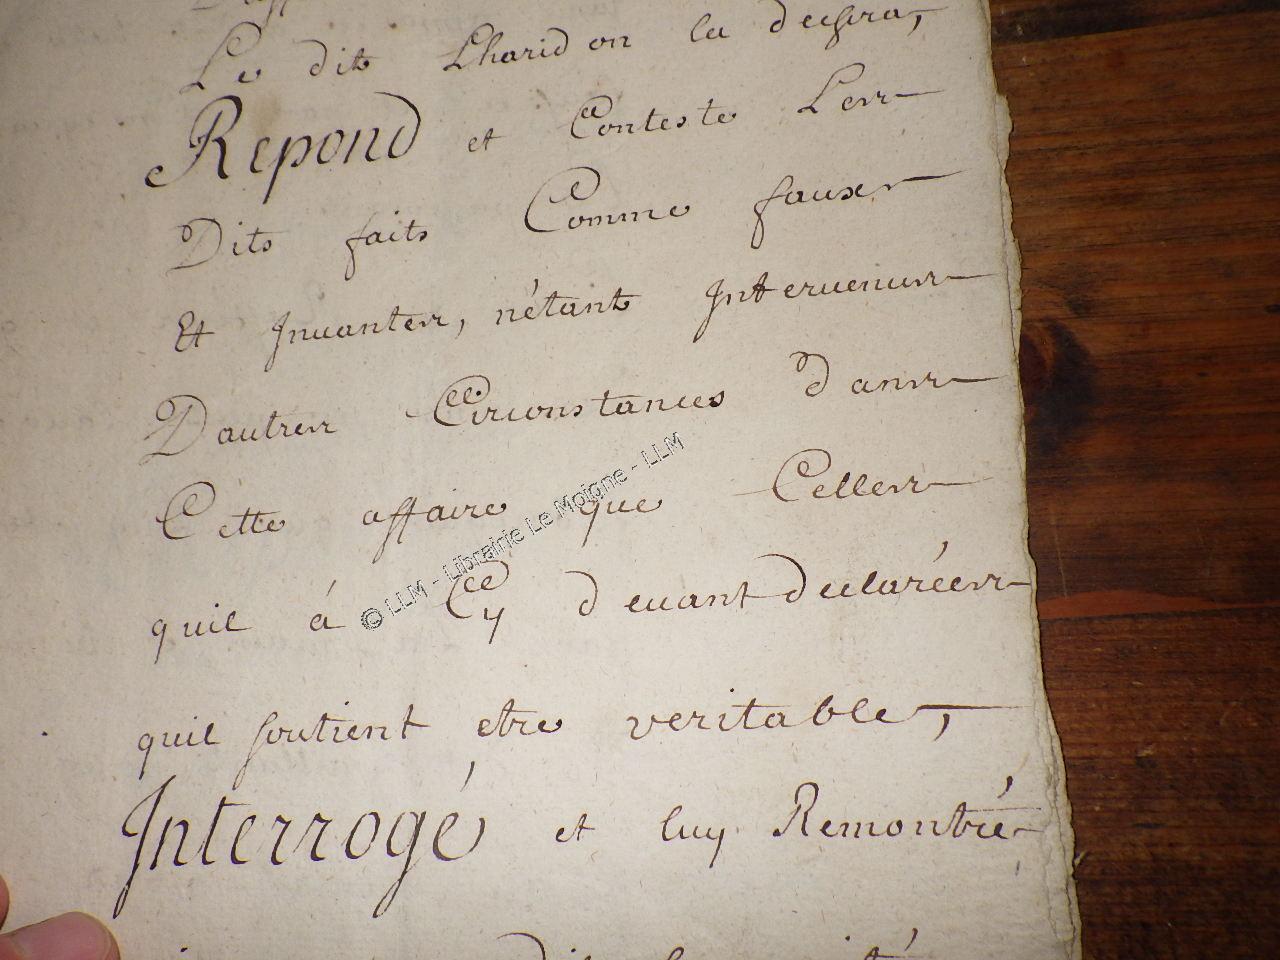 Le dit Lharidon la dechira,
Repond et Conteste Les
Dits faits Comme faux
Et Inuantes, n'étant Interuenus
Dautres Circonstances dans
Cette affaire que Celles
quil á Cy deuant declarées
quil soutient etre veritable,
Interrogé et luy Remontré
© LLM - Librairie Le Moigne - LLM